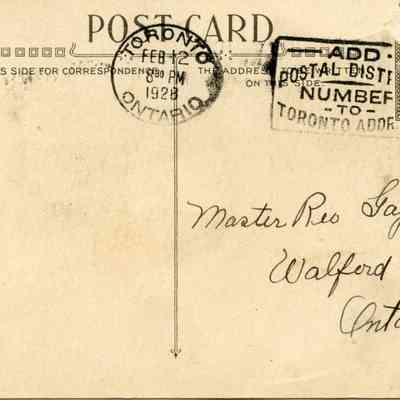 POST CARD
THIS SIDE FOR CORRESPONDENCE
THE ADDRESS
WRITTEN
ON THIS SIDE
TORONTO
FEB 12
8 30 PM
1928
ONTARIO
ADD
POSTAL DISTR
NUMBER
-TO-
TORONTO ADDR
Master Reo
Walford
Onta